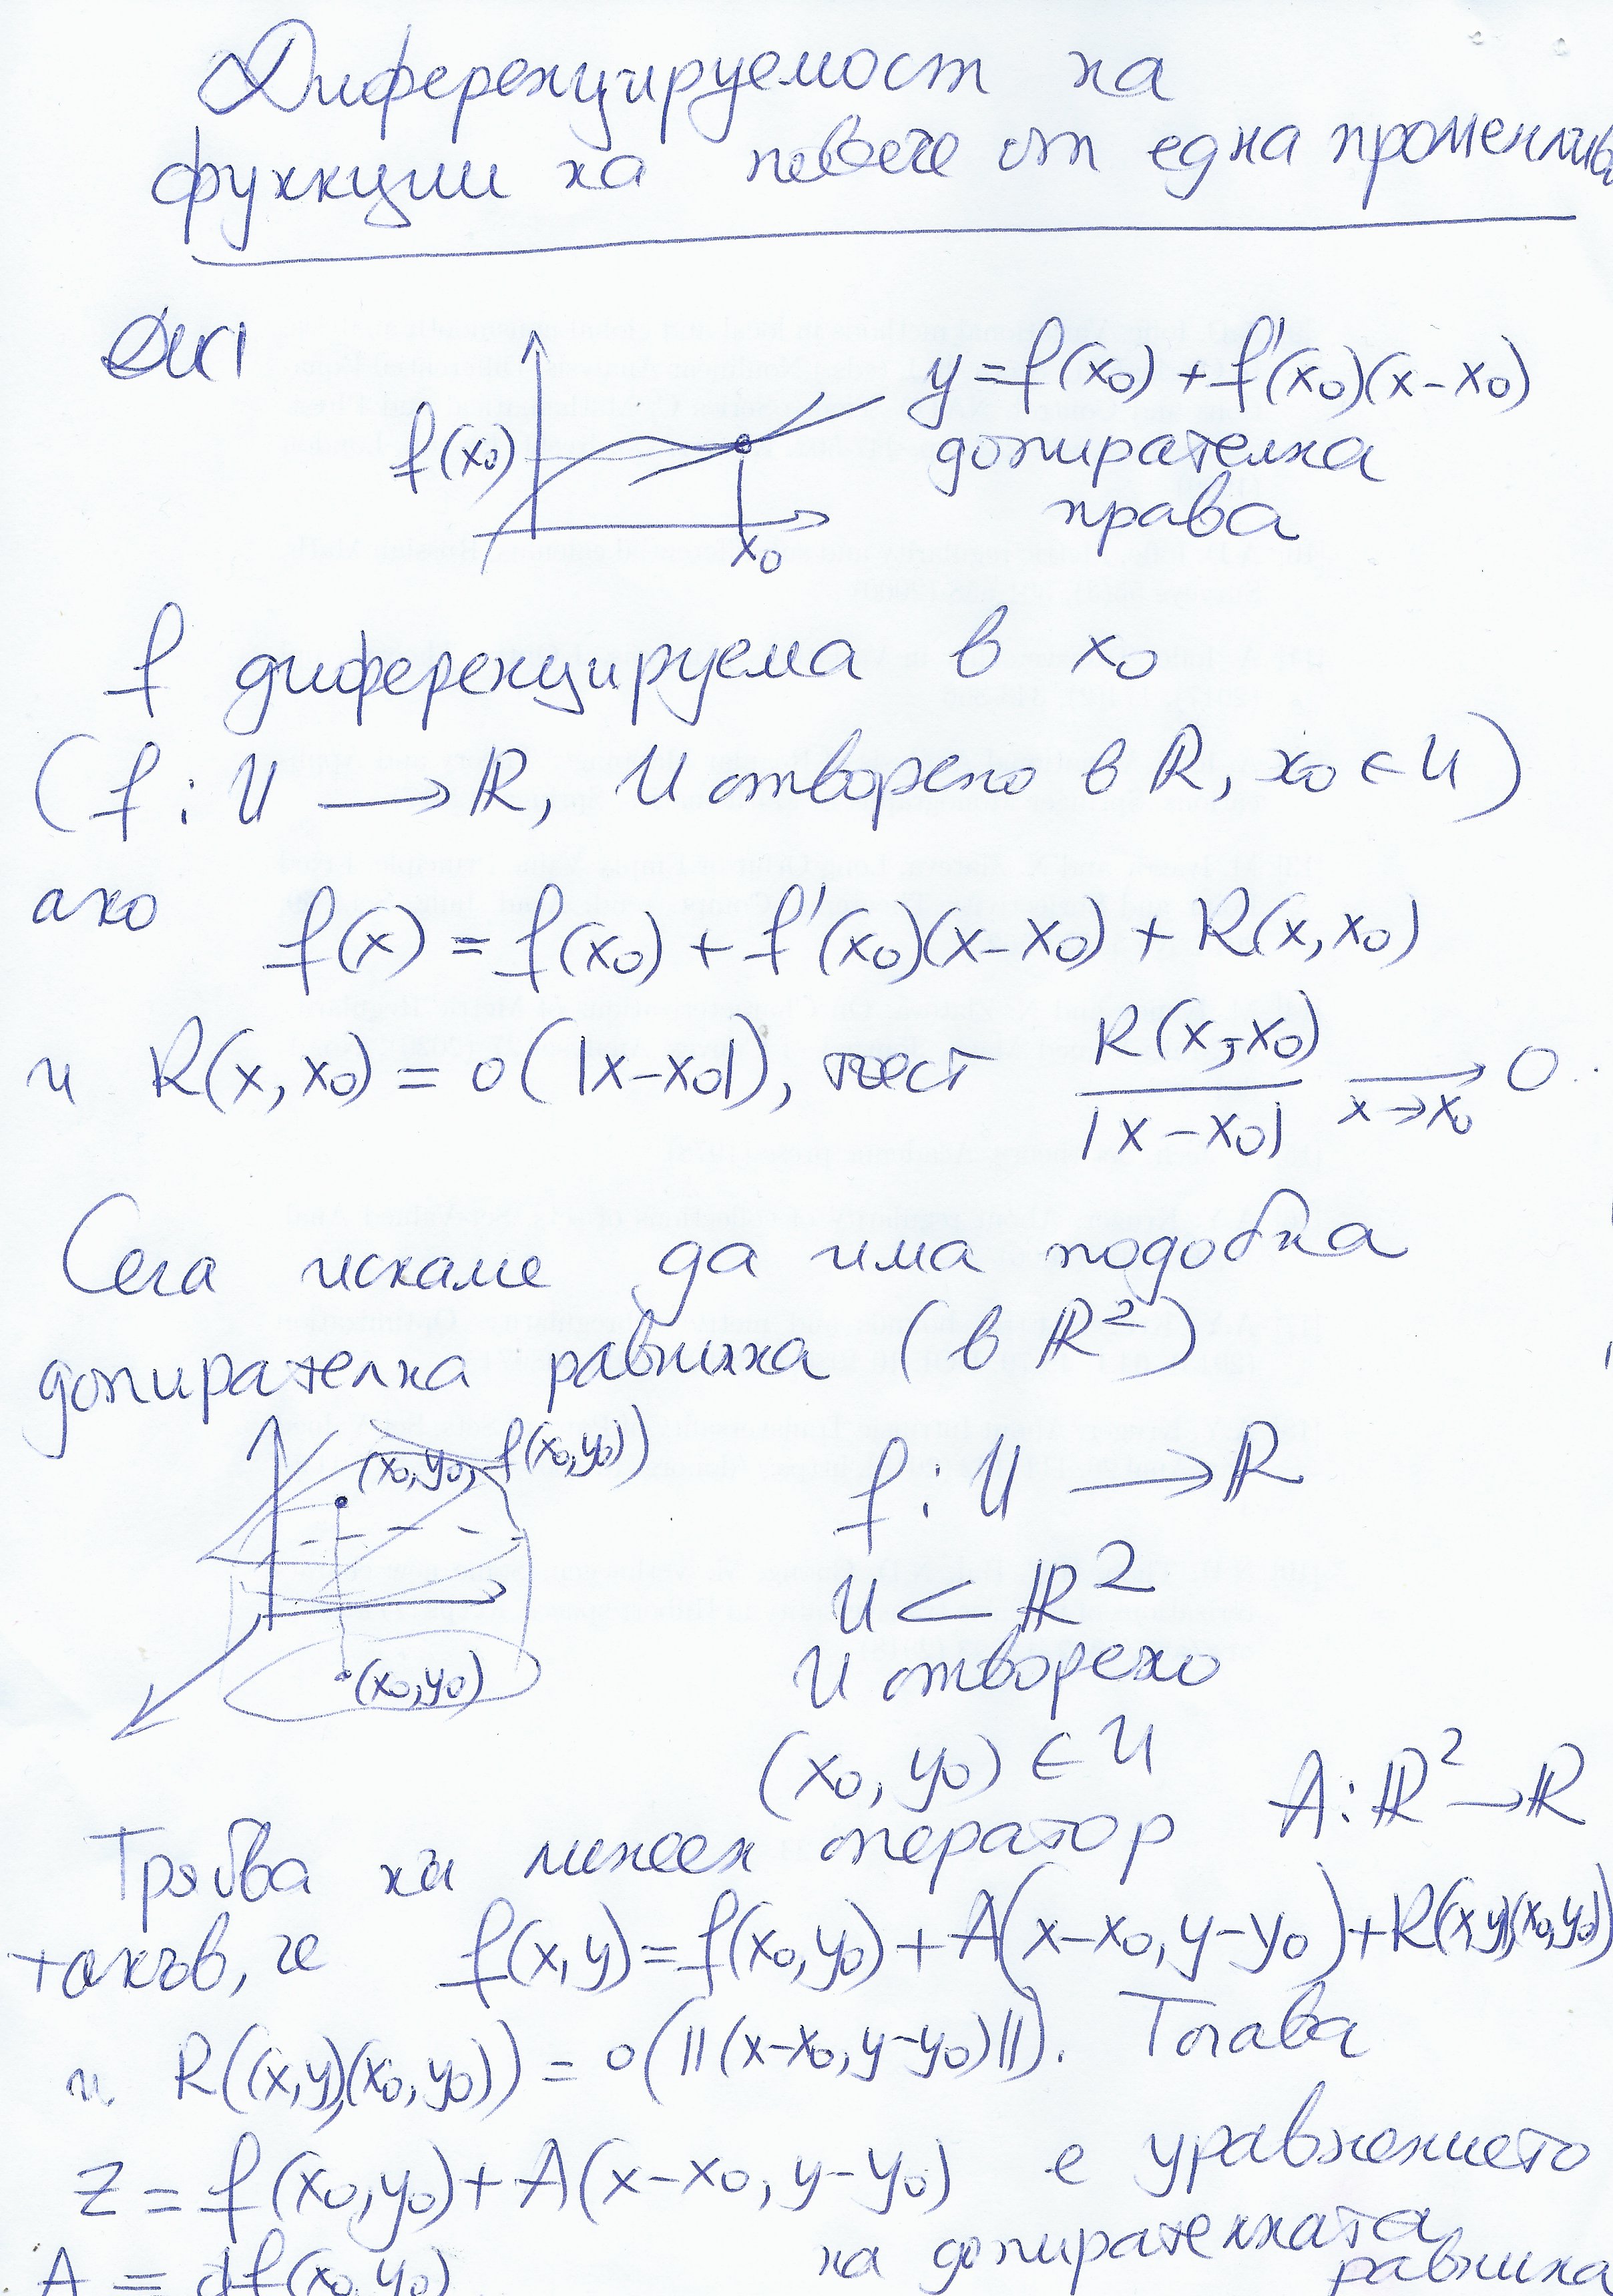 Диференцируемост на
функции на повече от една променлива
ДИС1
f(x₀)
x₀
y = f(x₀) + f'(x₀)(x - x₀)
допирателна
права
f диференцируема в x₀
(f : U → ℝ, U отворено в ℝ, x₀ ∈ U)
ако f(x) = f(x₀) + f'(x₀)(x - x₀) + R(x, x₀)
и R(x, x₀) = o(|x - x₀|), тоест R(x, x₀) / |x - x₀| → 0
x → x₀
Сега искаме да има подобна
допирателна равнина (в ℝ²)
(x₀, y₀, f(x₀, y₀))
(x₀, y₀)
f : U → ℝ
U ⊂ ℝ²
U отворено
(x₀, y₀) ∈ U
Трябва ни линеен оператор A : ℝ² → ℝ
такъв, че f(x, y) = f(x₀, y₀) + A(x - x₀, y - y₀) + R((x, y), (x₀, y₀))
и R((x, y), (x₀, y₀)) = o(||(x - x₀, y - y₀)||). Тогава
z = f(x₀, y₀) + A(x - x₀, y - y₀) е уравнението
на допирателната
равнина
A = df(x₀, y₀)